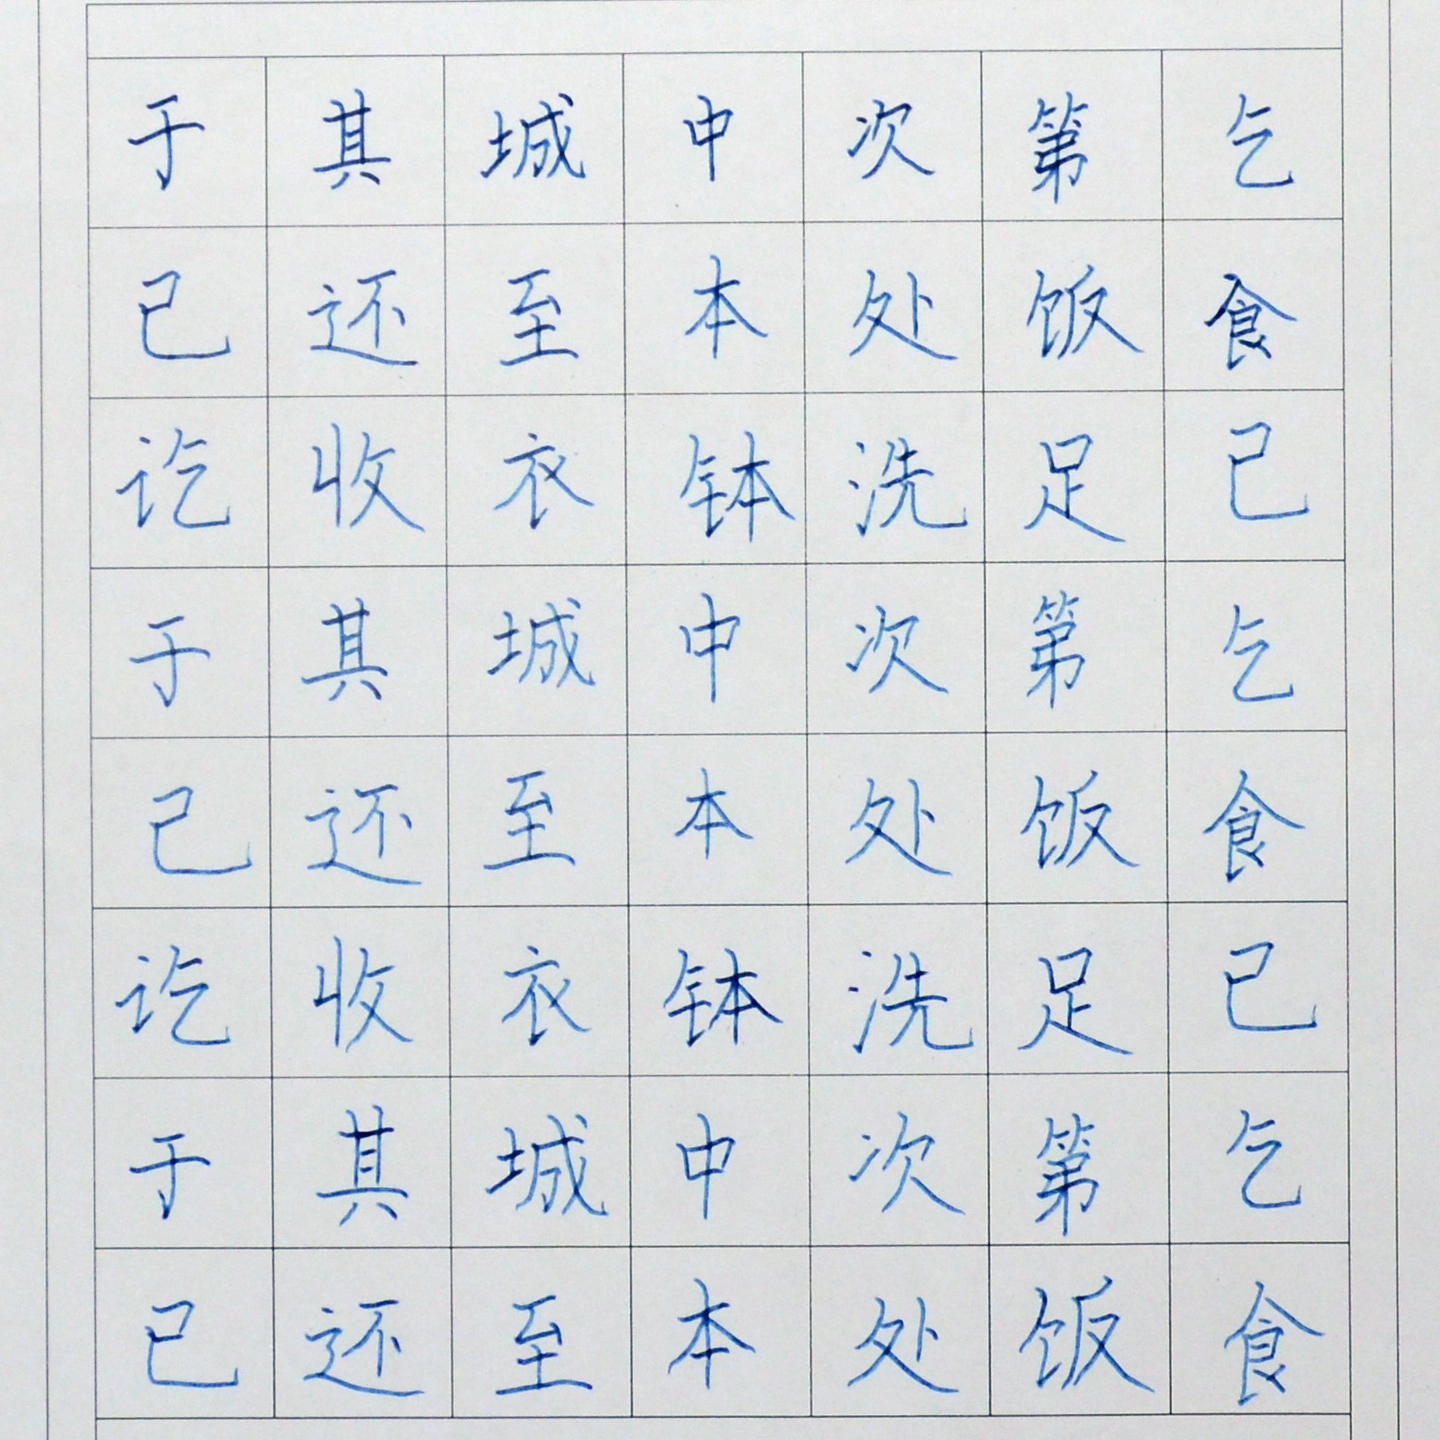 于其城中次第乞
已还至本处饭食
讫收衣钵洗足已
于其城中次第乞
已还至本处饭食
讫收衣钵洗足已
于其城中次第乞
已还至本处饭食